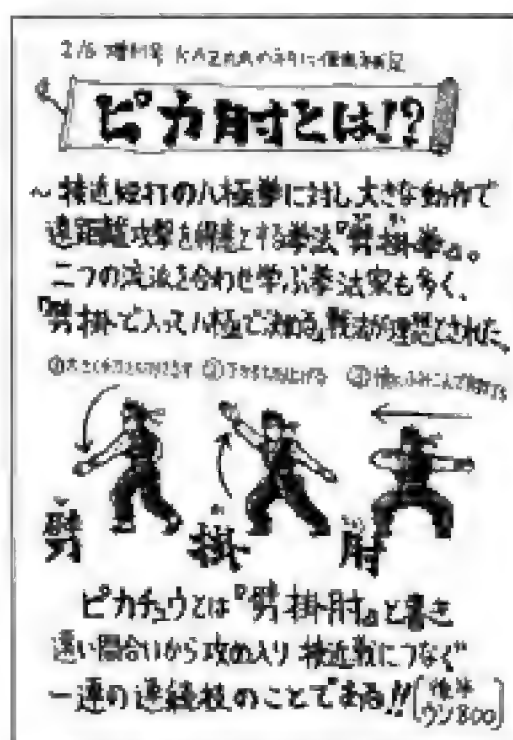 2/6 増刊号
ピカ肘とは!?
〜接近短打の八極拳に対し大きな動作で
遠距離攻撃を得意とする拳法『劈掛拳』。
二つの流派を合わせ学ぶ拳法家も多く、
『劈掛で入って八極で決める』戦法が理想とされた。
②下から打ち上げる
劈
掛
肘
ピカチュウとは『劈掛肘』と書き
遠い間合いから攻め入り接近戦につなぐ
一連の連続技のことである!!(後半ウソ800)